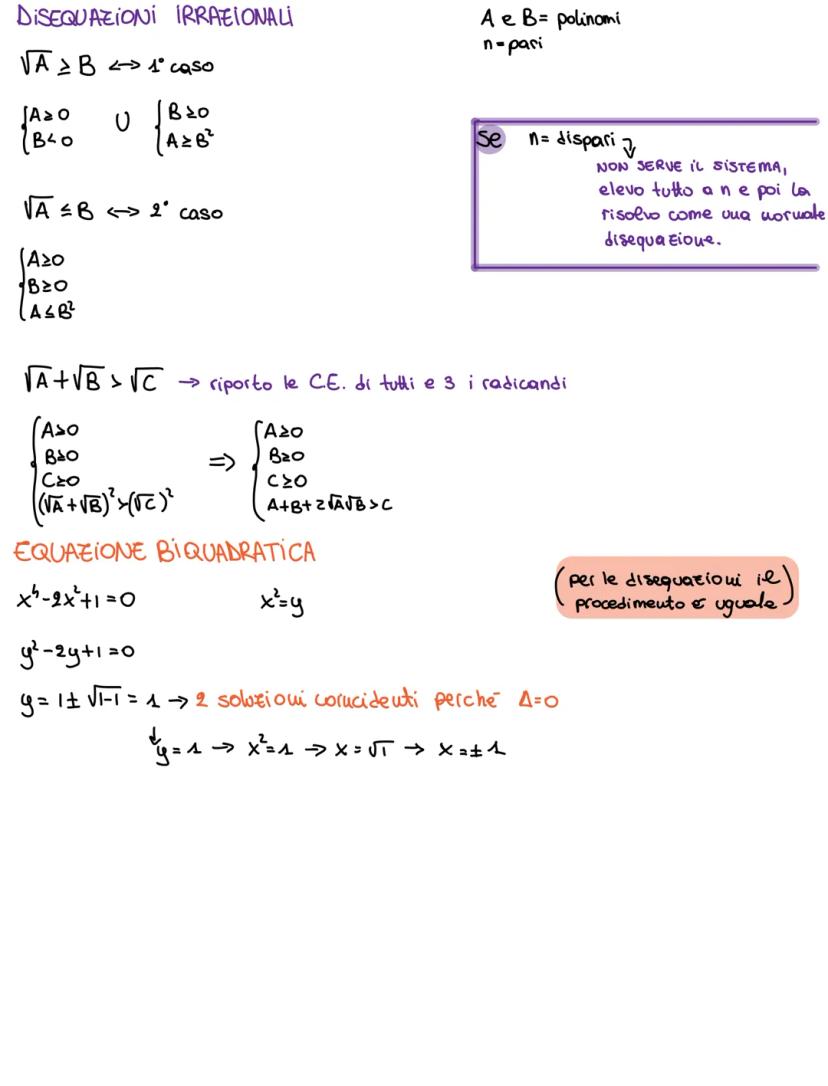 DISEQUAZIONI IRRAZIONALI
A e B= polinomi
n=pari
√A ≥ B ↔ 1° caso
{A≥0 U {B≥0
B<0 A≥B²
Se n= dispari
NON SERVE IL SISTEMA,
elevo tutto a n e poi la
risolvo come una normale
disequazione.
√A ≤B ↔ 2° caso
{A≥0
B≥0
A≤B²
√A+√B > √C → riporto le C.E. di tutti e 3 i radicandi
{A≥0 ⇒ {A≥0
B≥0 B≥0
C≥0 C≥0
(√A+√B)²>(√C)² A+B+2√A√B>C
EQUAZIONE BIQUADRATICA
(per le disequazioni il
procedimento è uguale)
x⁴-2x²+1=0 x²=y
y²-2y+1=0
y= 1± √1-1 = 1 → 2 soluzioni coincidenti perché Δ=0
↓
y=1 → x²=1 → x=√1 → x=±1